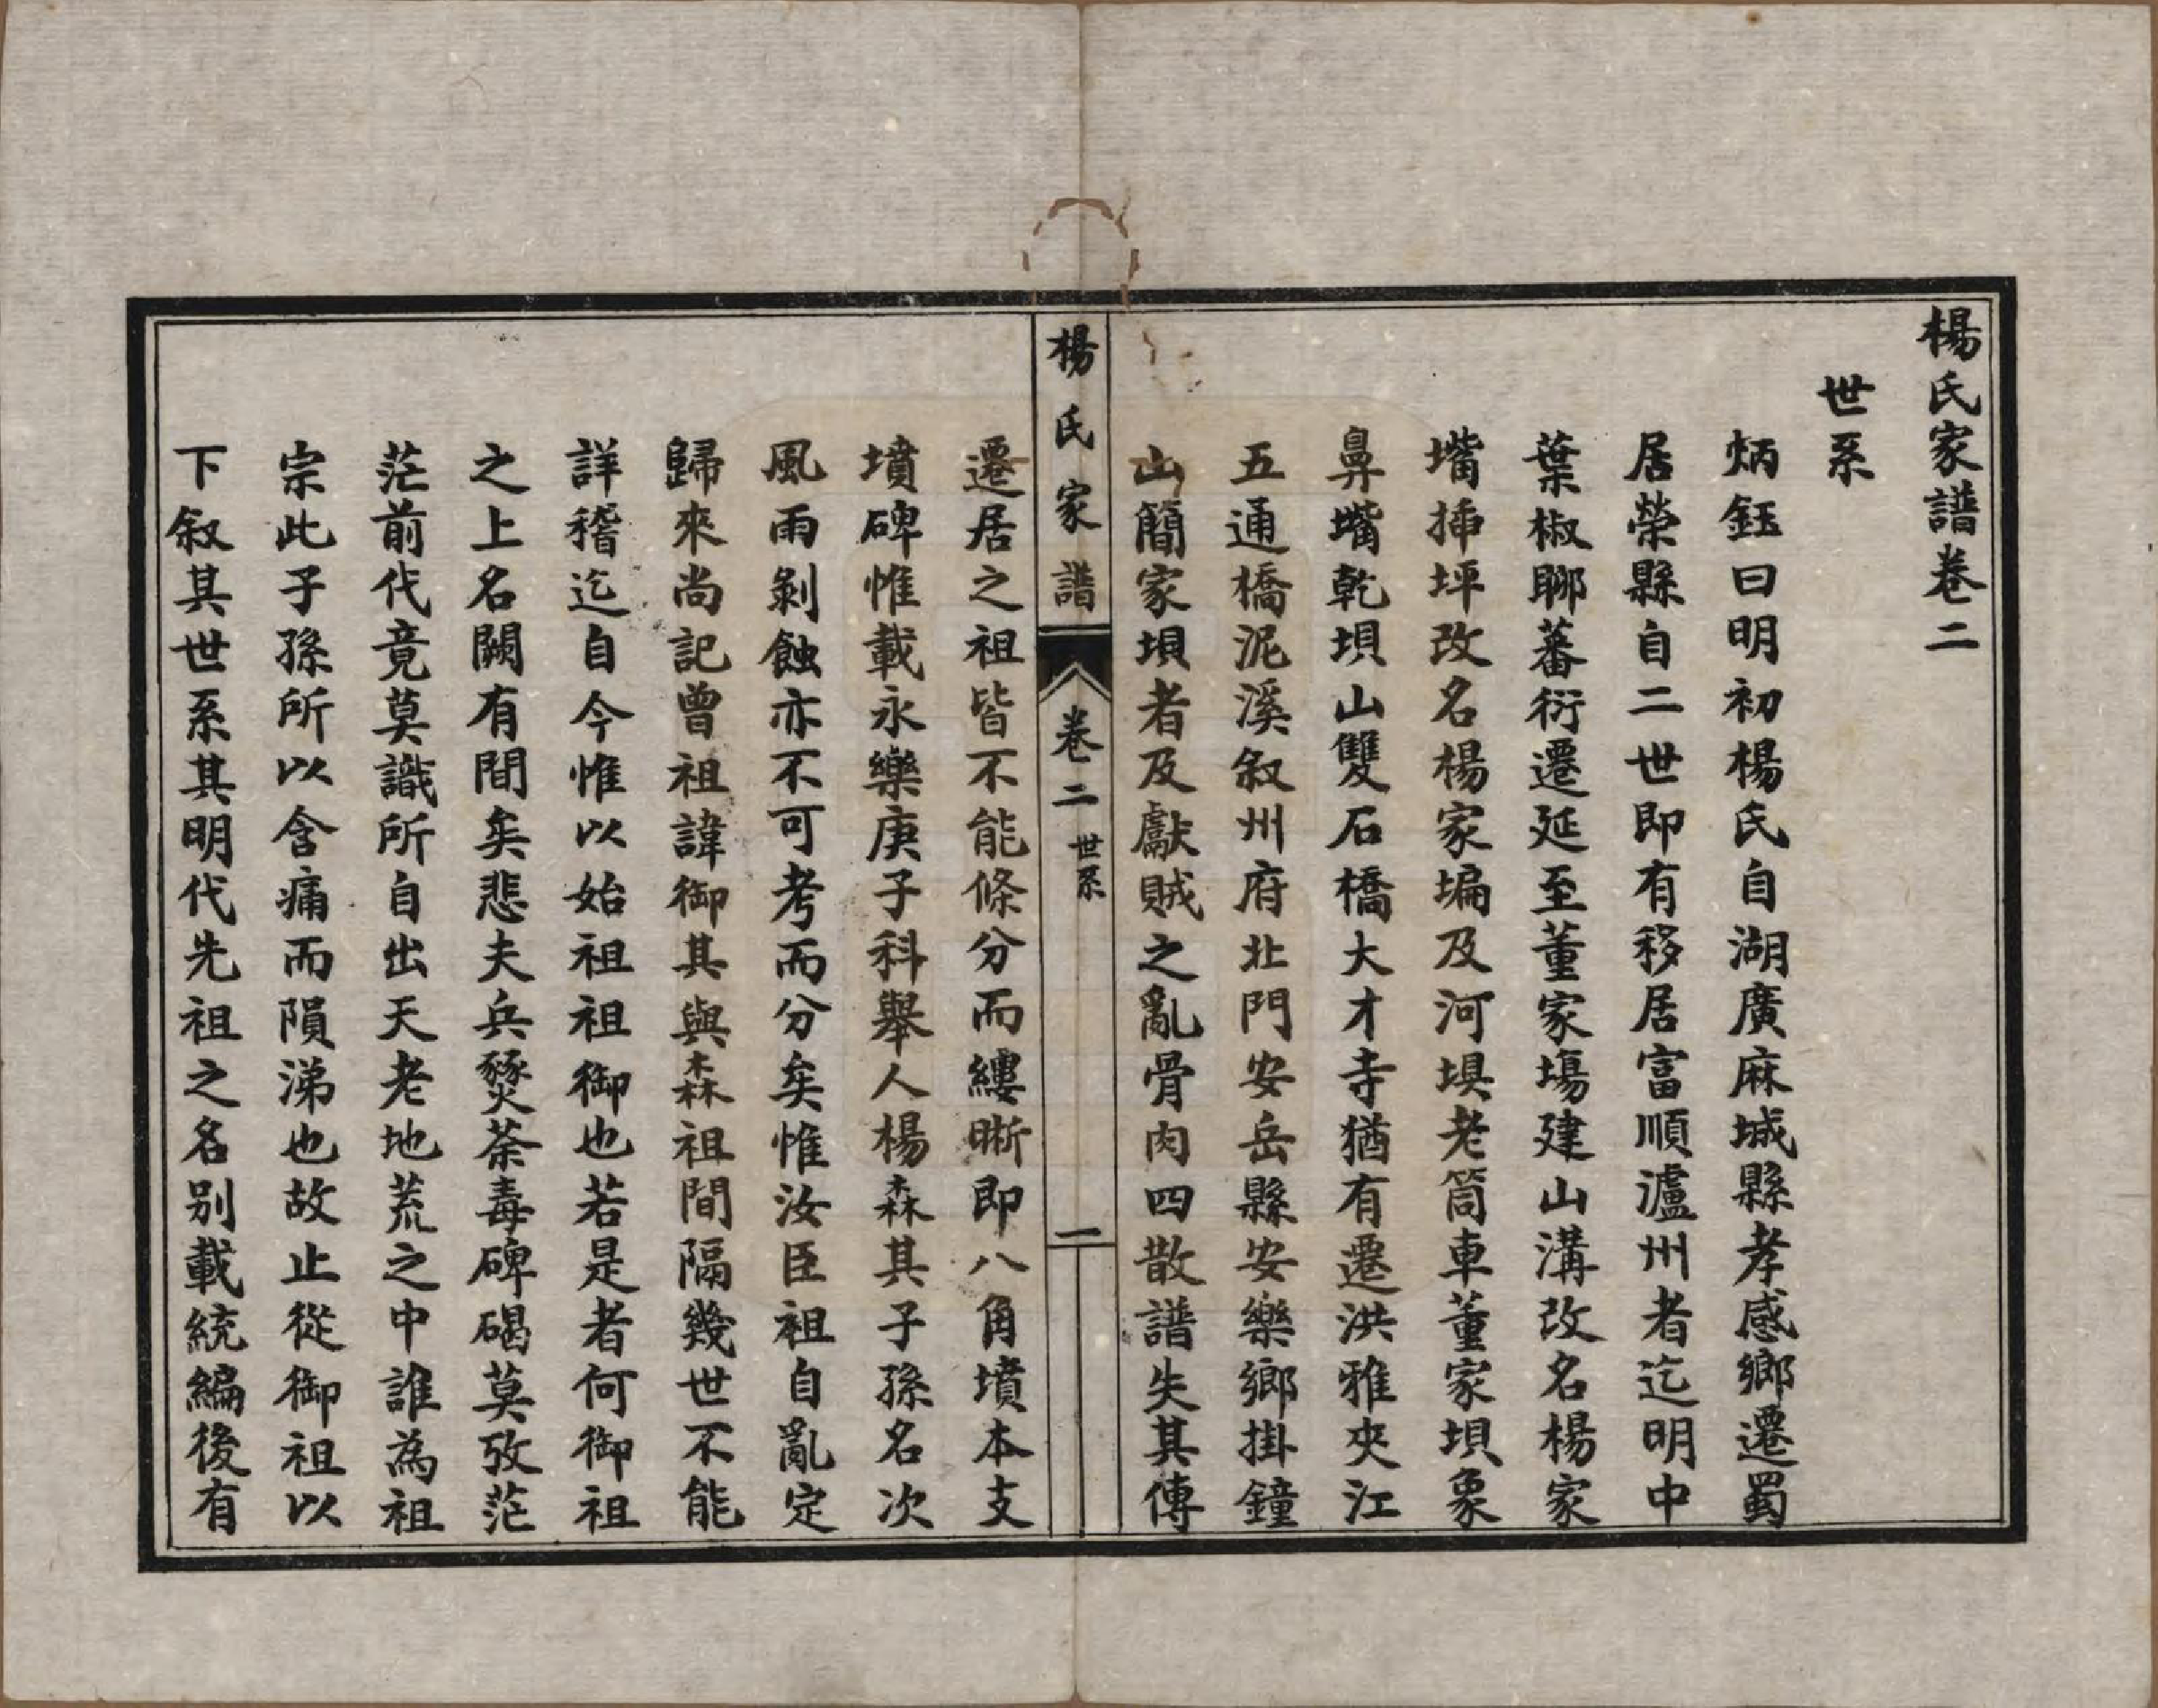 楊氏家譜卷二
世系
炳鈺曰明初楊氏自湖廣麻城縣孝感鄉遷蜀
居榮縣自二世即有移居富順瀘州者迄明中
葉椒聊蕃衍遷延至董家塲建山溝改名楊家
嘴揷坪改名楊家塥及河埧老筒車董家埧象
鼻嘴乾埧山雙石橋大才寺猶有遷洪雅夾江
五通橋泥溪叙州府北門安岳縣安樂鄉掛鐘
山簡家埧者及獻賊之亂骨肉四散譜失其傳
楊氏家譜
卷二
世系
一
遷居之祖皆不能條分而縷晰即八角墳本支
墳碑惟載永樂庚子科舉人楊森其子孫名次
風雨剝蝕亦不可考而分矣惟汝臣祖自亂定
歸來尚記曾祖諱御其與森祖間隔幾世不能
詳稽迄自今惟以始祖祖御也若是者何御祖
之上名闕有間矣悲夫兵燹荼毒碑碣莫攷茫
茫前代竟莫識所自出天老地荒之中誰為祖
宗此子孫所以含痛而隕涕也故止從御祖以
下叙其世系其明代先祖之名別載統編後有